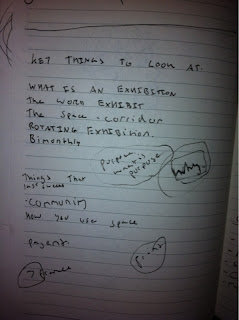 KEY THINGS TO LOOK AT.
WHAT IS AN EXHIBITION
The WORD EXHIBIT
The SPACE - corridor
ROTATING EXHIBITION.
Bimonthly
purpose
what is
purpose
why.
Things That
community
how you use space